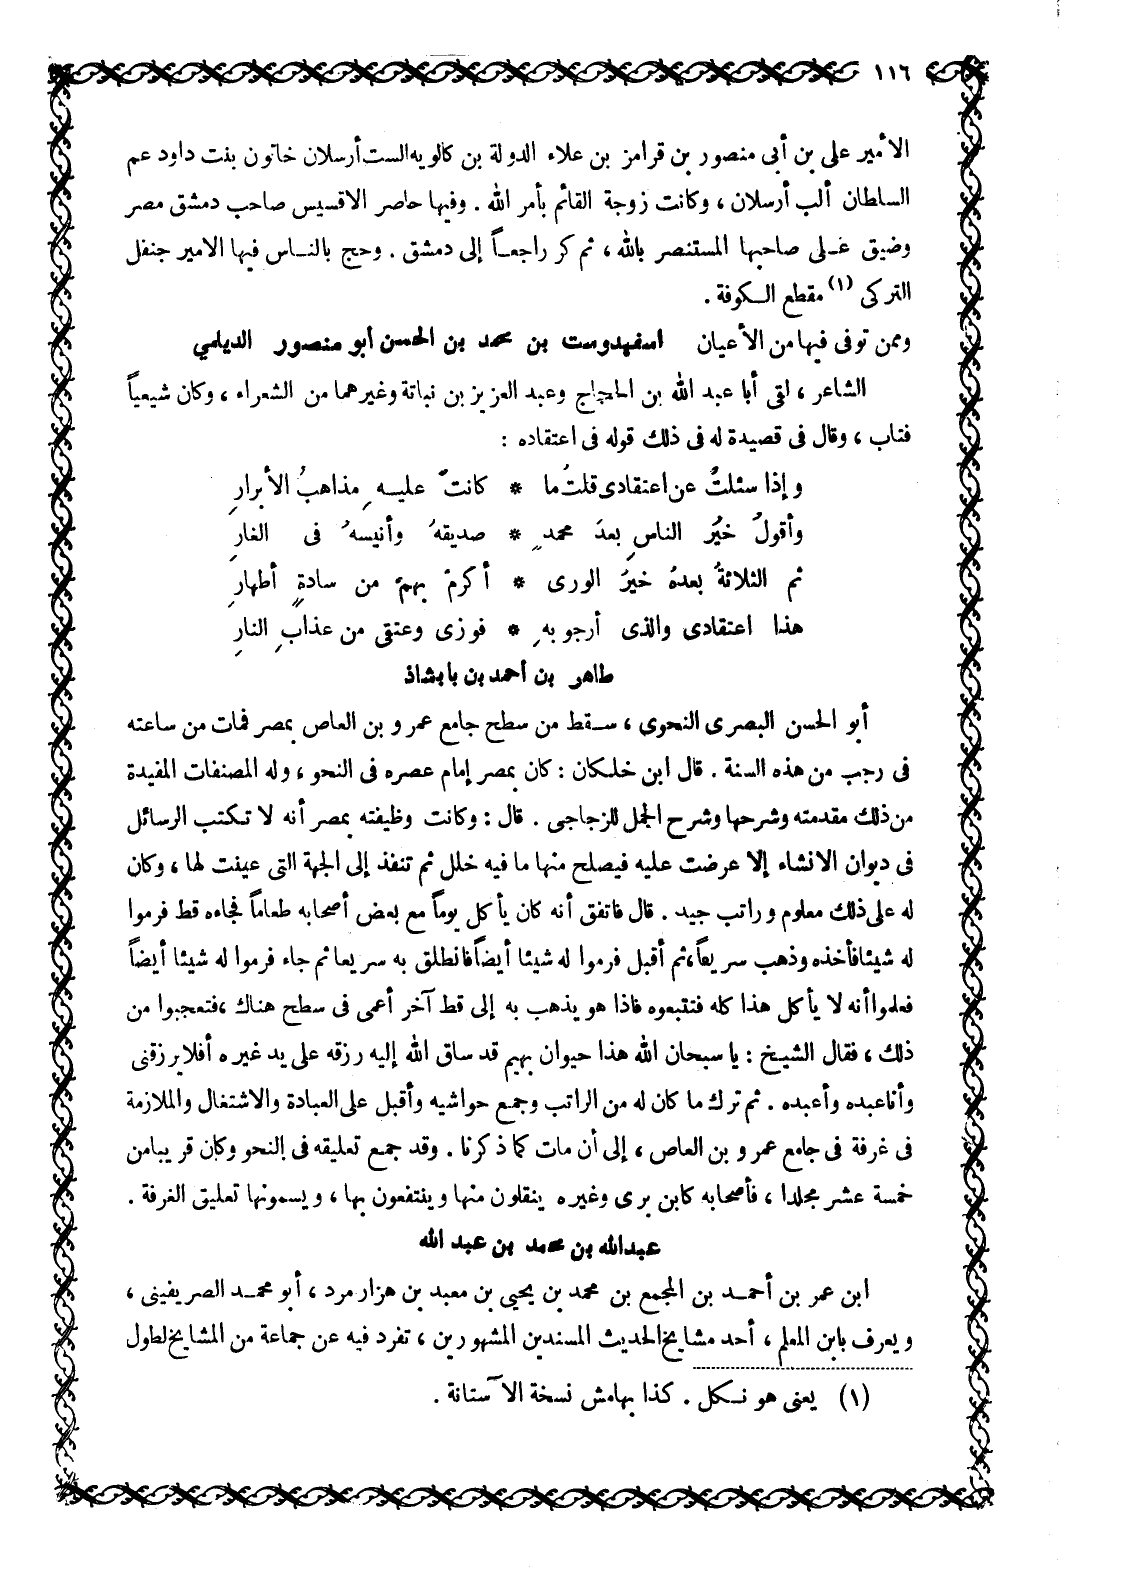 ١١٦
الأمير على بن أبى منصور بن قرامز بن علاء الدولة بن كالويه الست أرسلان خاتون بنت داود عم
السلطان ألب أرسلان ، وكانت زوجة القائم بأمر الله . وفيها حاصر الاقسيس صاحب دمشق مصر
وضيق على صاحبها المستنصر بالله ، ثم كر راجعاً إلى دمشق . وحج بالناس فيها الامير جنفل
التركى (١) مقطع الكوفة .
وممن توفى فيها من الأعيان اسفهدوست بن محمد بن الحسن أبو منصور الديلمي
الشاعر ، لقى أبا عبد الله بن الحجاج وعبد العزيز بن نباتة وغيرهما من الشعراء ، وكان شيعياً
فتاب ، وقال فى قصيدة له فى ذلك قوله فى اعتقاده :
وإذا سئلتُ عن اعتقادى قلتُ ما * كانت عليه مذاهبُ الأبرارِ
وأقولُ خيرُ الناسِ بعدَ محمدٍ * صديقهُ وأنيسهُ فى الغارِ
ثم الثلاثةُ بعدهُ خيرُ الورى * أكرمْ بهمْ من سادةٍ أطهارِ
هذا اعتقادى والذى أرجو بهِ * فوزى وعتقى من عذابِ النارِ
طاهر بن أحمد بن بابشاذ
أبو الحسن البصرى النحوى ، سقط من سطح جامع عمرو بن العاص بمصر فمات من ساعته
فى رجب من هذه السنة . قال ابن خلكان : كان بمصر إمام عصره فى النحو ، وله المصنفات المفيدة
من ذلك مقدمته وشرحها وشرح الجمل للزجاجى . قال : وكانت وظيفته بمصر أنه لا تكتب الرسائل
فى ديوان الانشاء إلا عرضت عليه فيصلح منها ما فيه خلل ثم تنفذ إلى الجهة التى عينت لها ، وكان
له على ذلك معلوم وراتب جيد . قال فاتفق أنه كان يأكل يوماً مع بعض أصحابه طعاماً فجاءه قط فرموا
له شيئا فأخذه وذهب سريعاً ، ثم أقبل فرموا له شيئا أيضاً فانطلق به سريعا ثم جاء فرموا له شيئا أيضاً
فعلموا أنه لا يأكل هذا كله فتتبعوه فاذا هو يذهب به إلى قط آخر أعمى فى سطح هناك ، فتعجبوا من
ذلك ، فقال الشيخ : يا سبحان الله هذا حيوان بهيم قد ساق الله إليه رزقه على يد غيره أفلا يرزقنى
وأنا عبده وأعبده . ثم ترك ما كان له من الراتب وجمع حواشيه وأقبل على العبادة والاشتغال والملازمة
فى غرفة فى جامع عمرو بن العاص ، إلى أن مات كما ذكرنا . وقد جمع تعليقه فى النحو وكان قريبا من
خمسة عشر مجلدا ، فأصحابه كابن برى وغيره ينقلون منها وينتفعون بها ، ويسمونها تعليق الغرفة .
عبدالله بن محمد بن عبد الله
ابن عمر بن أحمد بن المجمع بن محمد بن يحيى بن معبد بن هزارمرد ، أبو محمد الصريفينى ،
ويعرف بابن المعلم ، أحد مشايخ الحديث المسندين المشهورين ، تفرد فيه عن جماعة من المشايخ لطول
(١) يعنى هو نكل . كذا بهامش نسخة الآستانة .